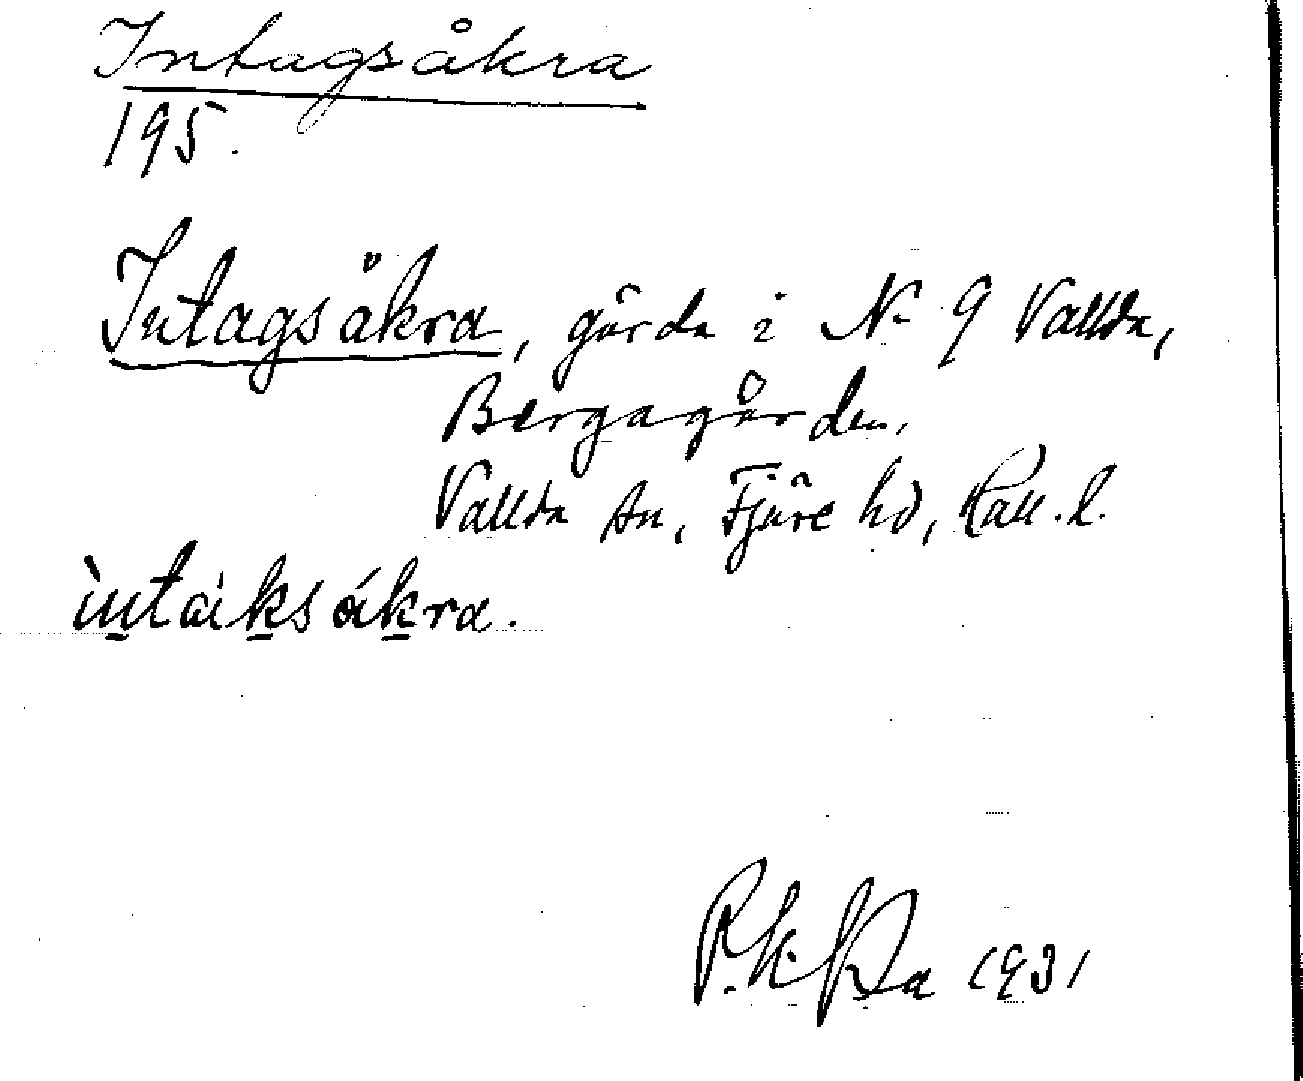 Intagsåkra
195.
Intagsåkra, gärda i N. 9 Vallda,
Bergagården,
Vallda sn, Fjäre hd, Hall. l.
ìntaksákra.
1931